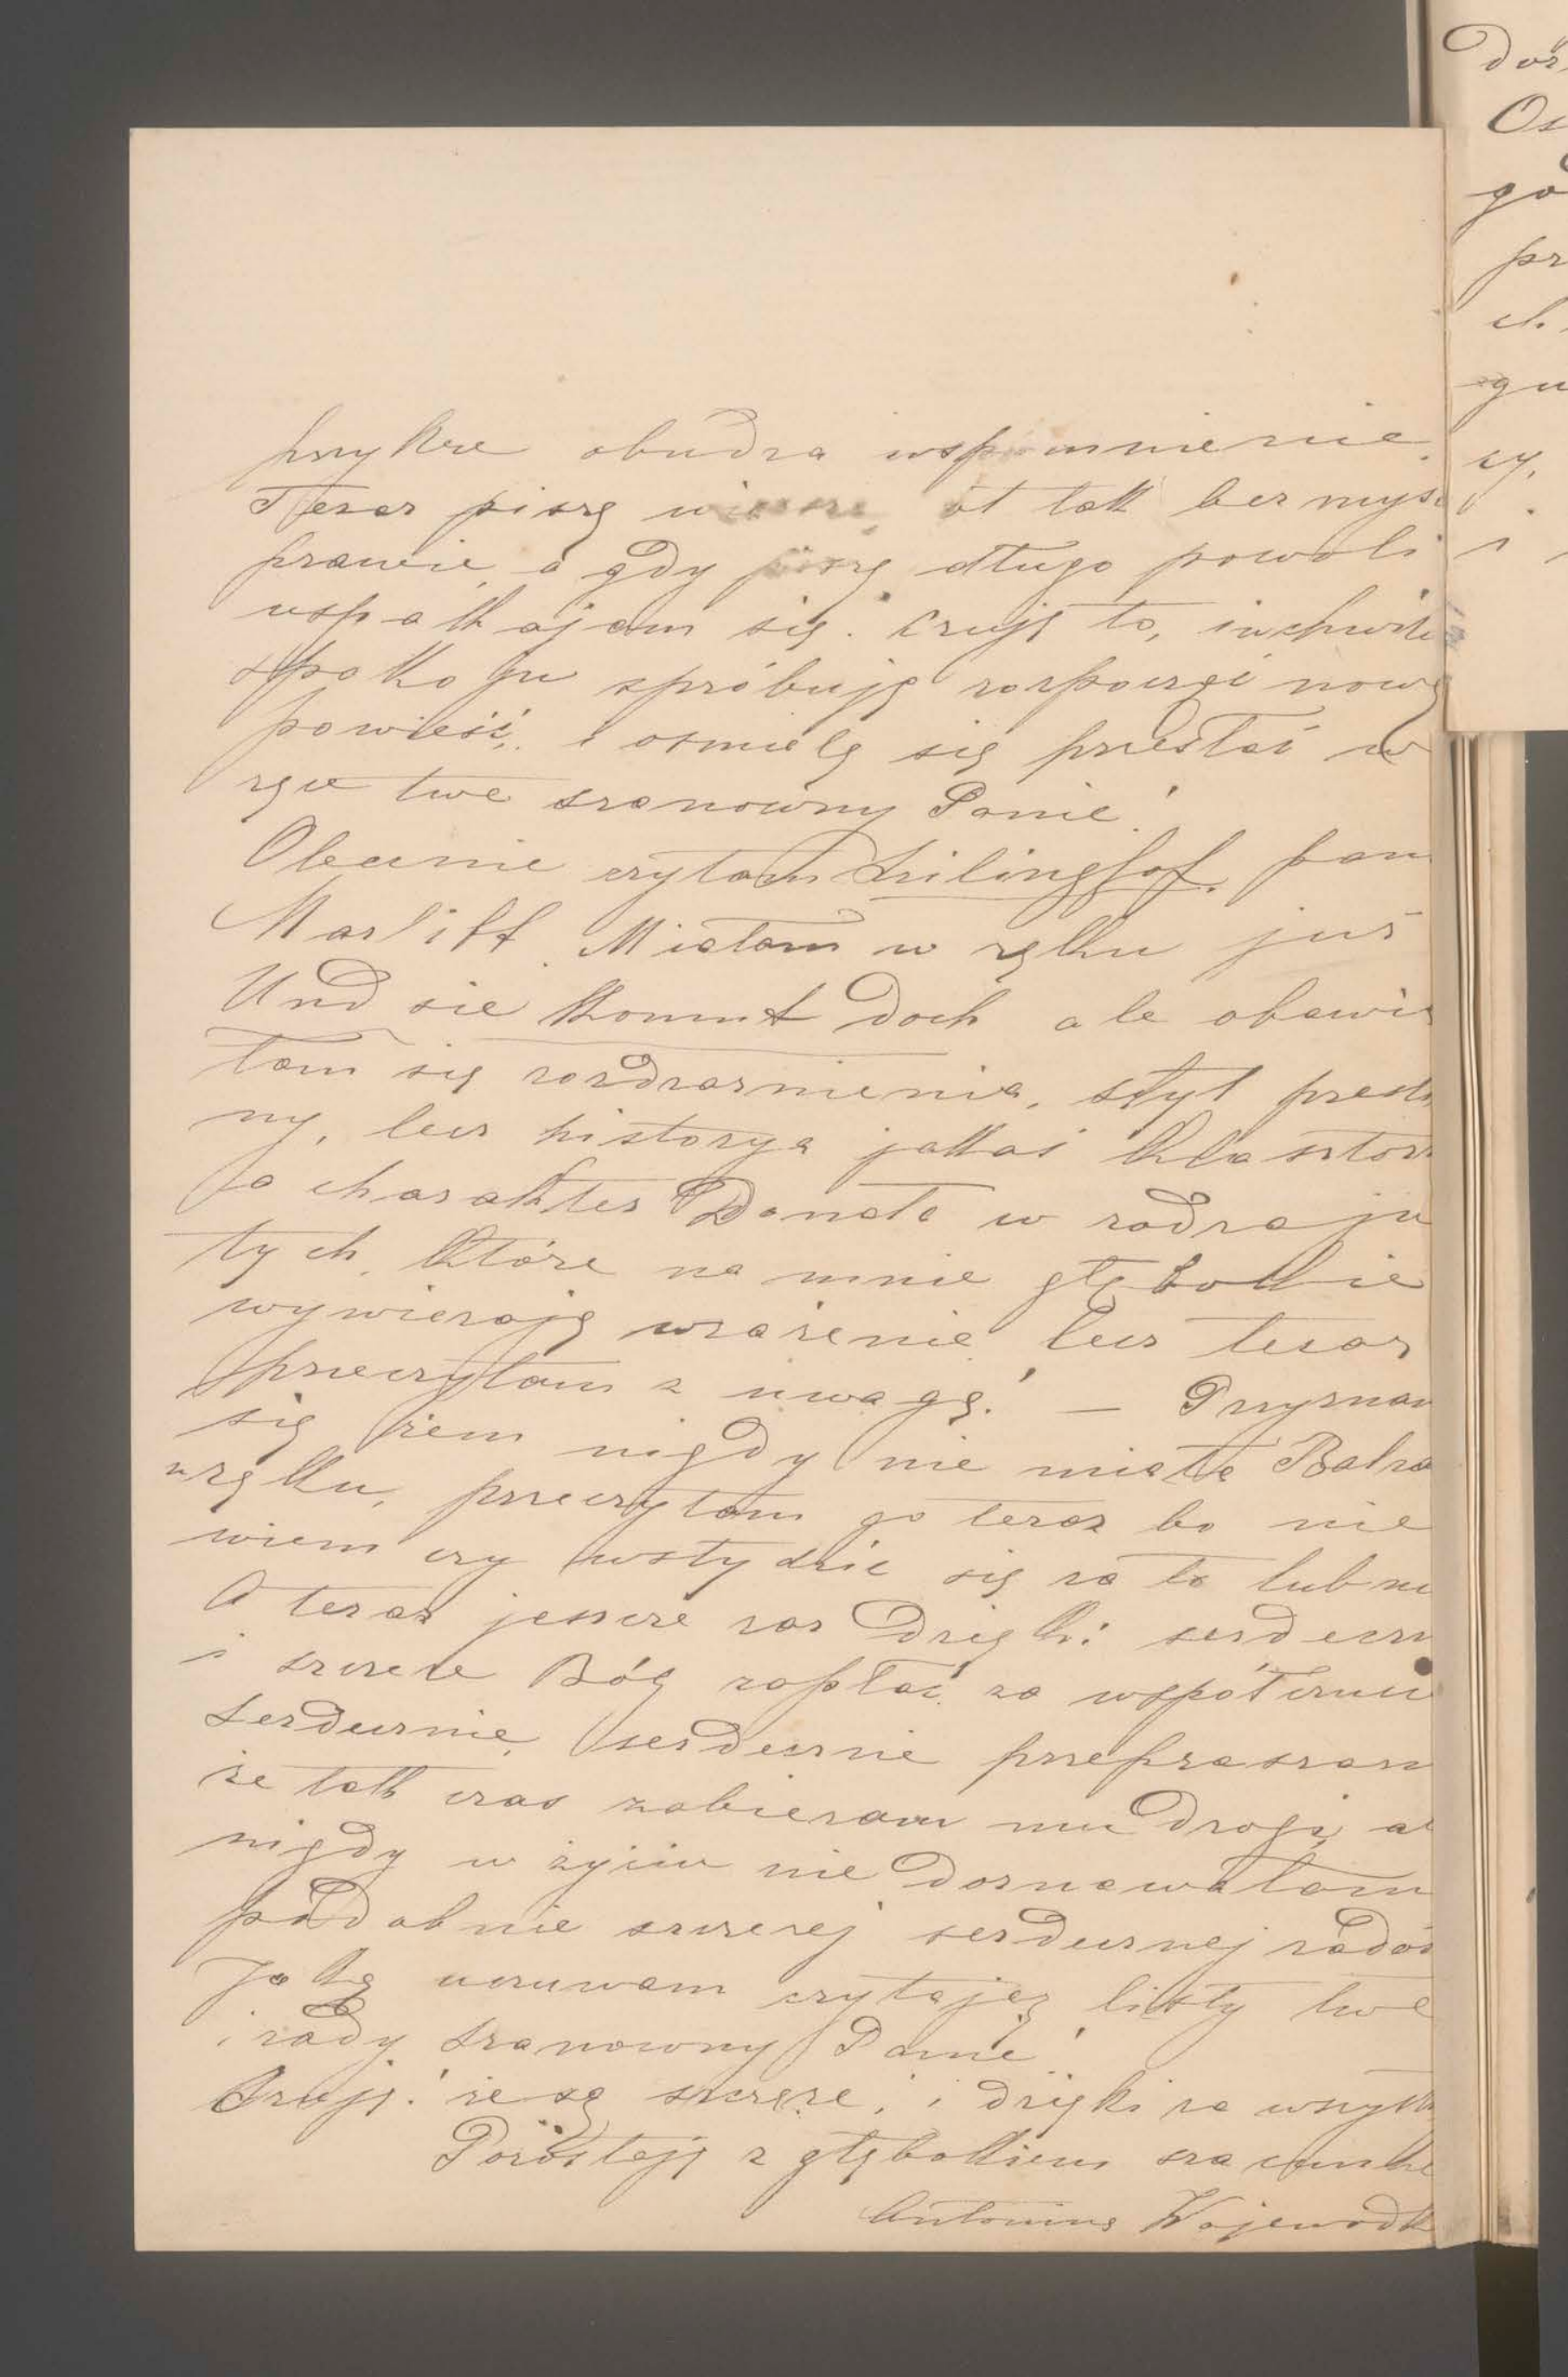 przykre obudza wspomnienie.
Teraz piszę wiersze, ot tak bez myśl
prawie, a gdy piszę długo powoli
uspakajam się. Czuję to, i w chwili
spokoju spróbuję rozpocząć nową
powieść, i ośmielę się przesłać w
ręce twe szanowny Panie!
Obecnie czytam Szilingshof. pan
Marlitt. Miałam w ręku już
Und sie kommt doch ale obawia
łam się rozdrażnienia, styl prześli
ny, lecz historya jakaś klasztorn
a charakter Donata w rodzaju
tych, które na mnie głębokie
wywierają wrażenie lecz teraz
przeczytam z uwagą! — Przyznam
się żem nigdy nie miała Balza
w ręku, przeczytam go teraz bo nie
wiem czy wstydzić się za to lub ni
A teraz jeszcze raz Dzięki serdeczn
i szczere Bóg zapłać za współczuci
Serdecznie, serdecznie przepraszam
że tak czas zabieram mu Drogi, al
nigdy w życiu nie Doznawałam
podobnie szczerej serdecznej radoś
Jaką uczuwam czytając listy twe
i rady Szanowny Panie!
Czuję! że są szczere, i dzięki za wszystk
Pozostaję z głębokiem szacunkie
Antonina Wojewódk
Os
go
pr
gu